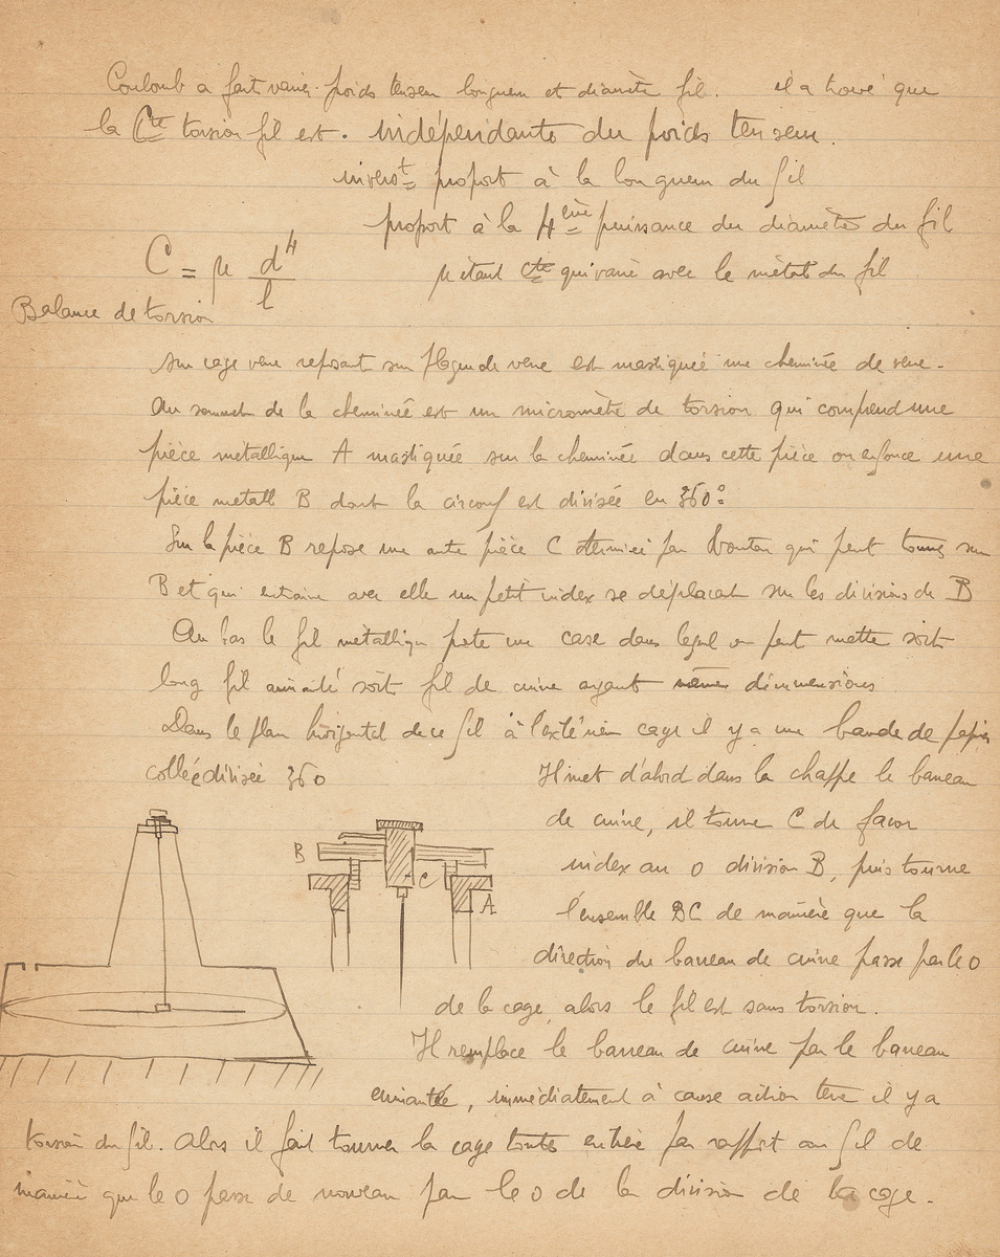 Coulomb a fait varier poids tenseur longueur et diamètre fil. il a trouvé que
la Cte torsion fil est . indépendante du poids tenseur.
inverst proport à la longueur du fil
proport à la 4ème puissance du diamètre du fil
C = μ d⁴ / l
μ étant Cte qui varie avec le métal du fil
Balance de torsion
Sur cage verre reposant sur de verre est mastiquée une cheminée de verre.
Au sommet de la cheminée est un micromètre de torsion qui comprend une
pièce métallique A mastiquée sur la cheminée dans cette pièce on enfonce une
pièce metall B dont la circonf est divisée en 360°
Sur la pièce B repose une autre pièce C par bouton qui peut tourner sur
B et qui entraine avec elle un petit index se déplaçant sur les divisions de B
Au bas le fil métallique porte une case dans lequel on peut mettre soit
long fil aimanté soit fil de cuivre ayant même dimmensions
Dans le plan horizontal de ce fil à l'extérieur cage il y a une bande de papier
collée divisée 360
B
C
A
Il met d'abord dans la chappe le barreau
de cuivre, il tourne C de façon
index au 0 division B, puis tourne
l'ensemble BC de manière que la
direction du barreau de cuivre passe par le 0
de la cage, alors le fil est sans torsion.
Il remplace le barreau de cuivre par le barreau
aimanté, immédiatement à cause action terre il y a
torsion du fil. Alors il fait tourner la cage toute entière par rapport au fil de
manière que le 0 passe de nouveau par le 0 de la division de la cage.